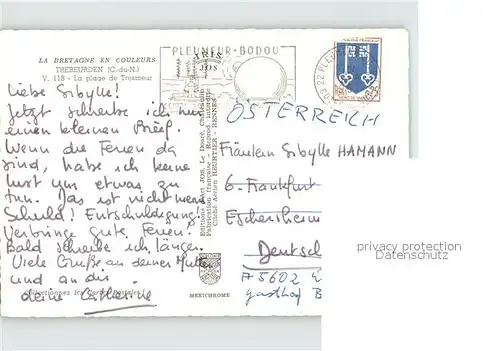 LA BRETAGNE EN COULEURS
TREBEURDEN (C.-du-N.)
V. 118 - La plage de Tresmeur
PLEUMEUR-BODOU
Liebe Sibylle!
Jetzt schreibe ich nur
einen kleinen Brief.
Wenn die Ferien da
sind, habe ich keine
Lust um etwas zu
tun. Das ist nicht mein
Schuld! Entschuldigung!
Verbringe gute Ferien!
Bald schreibe ich länger.
Viele Grüße an deiner Mutter
und an dir
deine Catherine
Collectionnez les Cartes Postales
Editions d'Art JOS Le Doaré, Châteaulin
Fabrication française - Reprod. interdite
Cliché Aérien HEURTIER - RENNES
MEXICHROME
ÖSTERREICH
Fräulein Sibylle HAMANN
6. Frankfurt
Eschersheim
Deutsch
A 5602
Gasthof B
privacy protection
Datenschutz